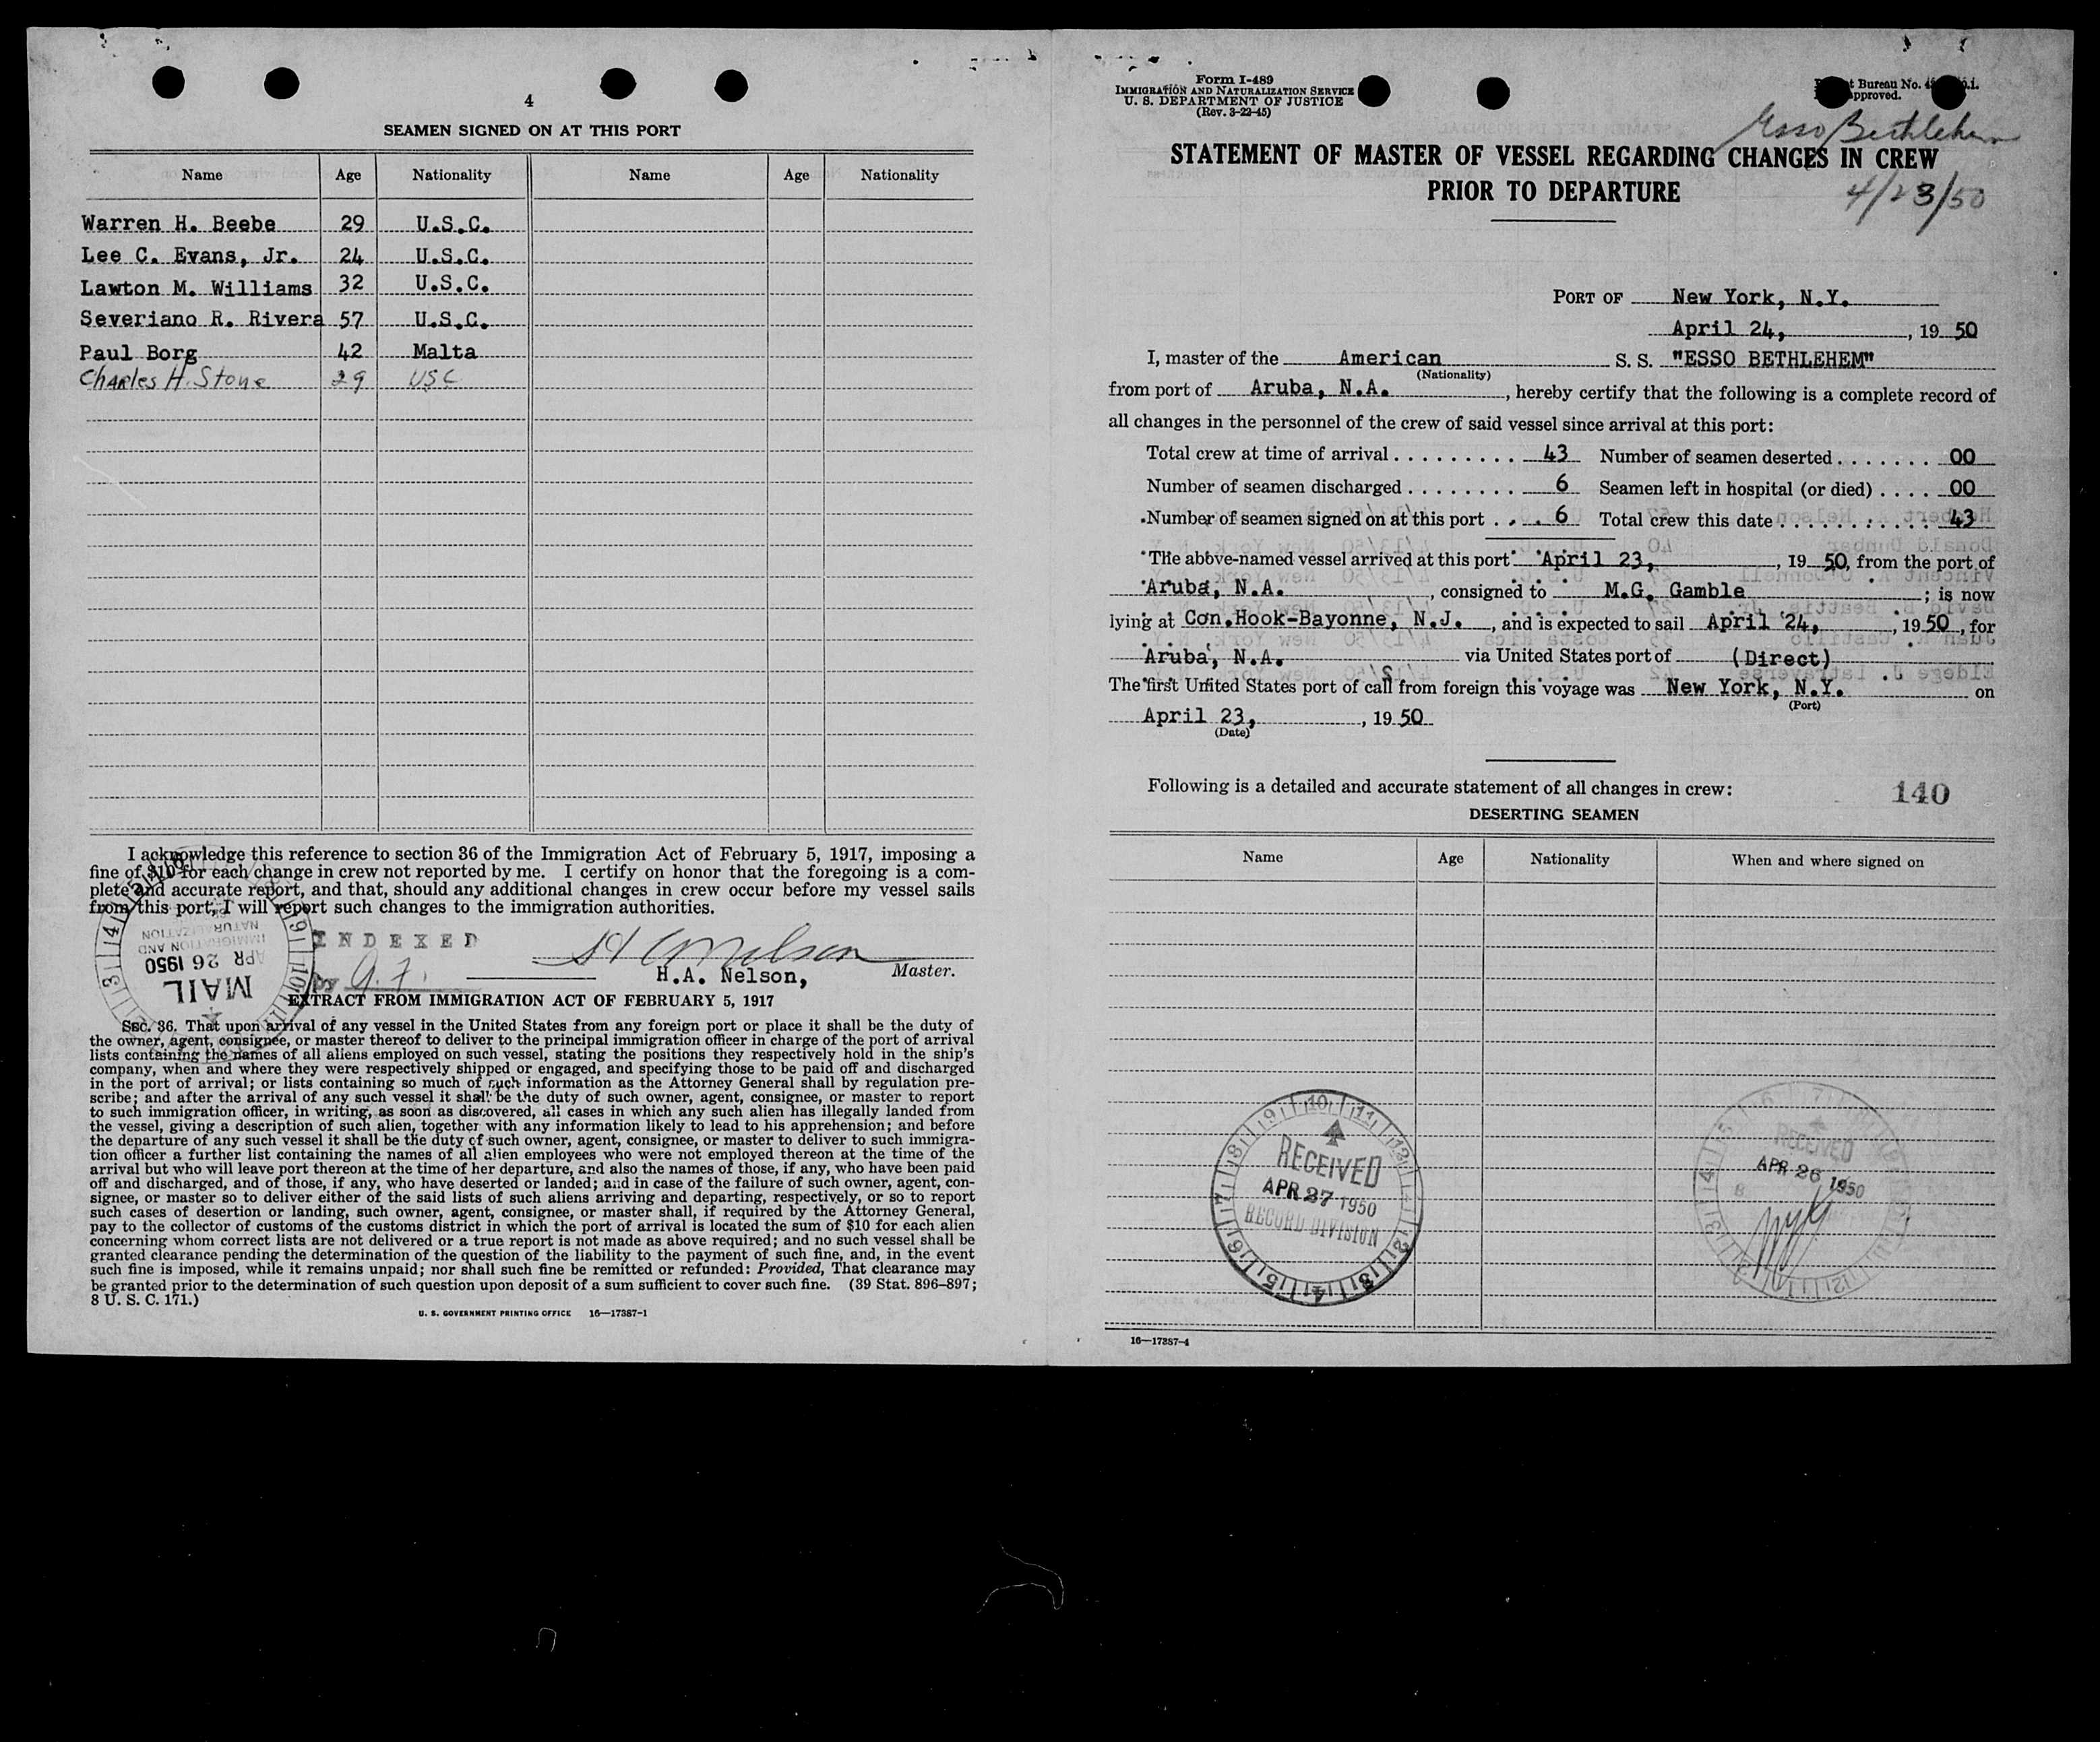 4
SEAMEN SIGNED ON AT THIS PORT
Name Age Nationality Name Age Nationality
Warren H. Beebe 29 U.S.C.
Lee C. Evans, Jr. 24 U.S.C.
Lawton M. Williams 32 U.S.C.
Severiano R. Rivera 57 U.S.C.
Paul Borg 42 Malta
Charles H. Stone 29 USC
I acknowledge this reference to section 36 of the Immigration Act of February 5, 1917, imposing a
fine of $10 for each change in crew not reported by me. I certify on honor that the foregoing is a com-
plete and accurate report, and that, should any additional changes in crew occur before my vessel sails
from this port, I will report such changes to the immigration authorities.
INDEXED
by
H.A. Nelson, Master.
IMMIGRATION AND
APR 26 1950
MAIL
EXTRACT FROM IMMIGRATION ACT OF FEBRUARY 5, 1917
SEC. 36. That upon arrival of any vessel in the United States from any foreign port or place it shall be the duty of
the owner, agent, consignee, or master thereof to deliver to the principal immigration officer in charge of the port of arrival
lists containing the names of all aliens employed on such vessel, stating the positions they respectively hold in the ship's
company, when and where they were respectively shipped or engaged, and specifying those to be paid off and discharged
in the port of arrival; or lists containing so much of such information as the Attorney General shall by regulation pre-
scribe; and after the arrival of any such vessel it shall be the duty of such owner, agent, consignee, or master to report
to such immigration officer, in writing, as soon as discovered, all cases in which any such alien has illegally landed from
the vessel, giving a description of such alien, together with any information likely to lead to his apprehension; and before
the departure of any such vessel it shall be the duty of such owner, agent, consignee, or master to deliver to such immigra-
tion officer a further list containing the names of all alien employees who were not employed thereon at the time of the
arrival but who will leave port thereon at the time of her departure, and also the names of those, if any, who have been paid
off and discharged, and of those, if any, who have deserted or landed; and in case of the failure of such owner, agent, con-
signee, or master so to deliver either of the said lists of such aliens arriving and departing, respectively, or so to report
such cases of desertion or landing, such owner, agent, consignee, or master shall, if required by the Attorney General,
pay to the collector of customs of the customs district in which the port of arrival is located the sum of $10 for each alien
concerning whom correct lists are not delivered or a true report is not made as above required; and no such vessel shall be
granted clearance pending the determination of the question of the liability to the payment of such fine, and, in the event
such fine is imposed, while it remains unpaid; nor shall such fine be remitted or refunded: Provided, That clearance may
be granted prior to the determination of such question upon deposit of a sum sufficient to cover such fine. (39 Stat. 896–897;
8 U. S. C. 171.)
U. S. GOVERNMENT PRINTING OFFICE 16—17387-1
Form I-489
IMMIGRATION AND NATURALIZATION SERVICE
U. S. DEPARTMENT OF JUSTICE
(Rev. 3-22-45)
Bureau No.
Esso Bethlehem
STATEMENT OF MASTER OF VESSEL REGARDING CHANGES IN CREW
PRIOR TO DEPARTURE
4/23/50
PORT OF New York, N.Y.
April 24, , 19 50
I, master of the American S. S. "ESSO BETHLEHEM"
(Nationality)
from port of Aruba, N.A. , hereby certify that the following is a complete record of
all changes in the personnel of the crew of said vessel since arrival at this port:
Total crew at time of arrival . . . . . . . . . . 43 Number of seamen deserted . . . . . . . 00
Number of seamen discharged . . . . . . . . 6 Seamen left in hospital (or died) . . . . 00
Number of seamen signed on at this port . . . 6 Total crew this date . . . . . . . . . . . 43
The above-named vessel arrived at this port April 23, , 19 50, from the port of
Aruba, N.A. , consigned to M.G. Gamble ; is now
lying at Con.Hook-Bayonne, N.J. , and is expected to sail April 24, , 19 50 , for
Aruba, N.A. via United States port of (Direct)
The first United States port of call from foreign this voyage was New York, N.Y. on
(Port)
April 23, , 19 50
(Date)
Following is a detailed and accurate statement of all changes in crew:
140
DESERTING SEAMEN
Name Age Nationality When and where signed on
RECEIVED
APR 27 1950
RECORD DIVISION
RECEIVED
APR 26 1950
16—17387-4